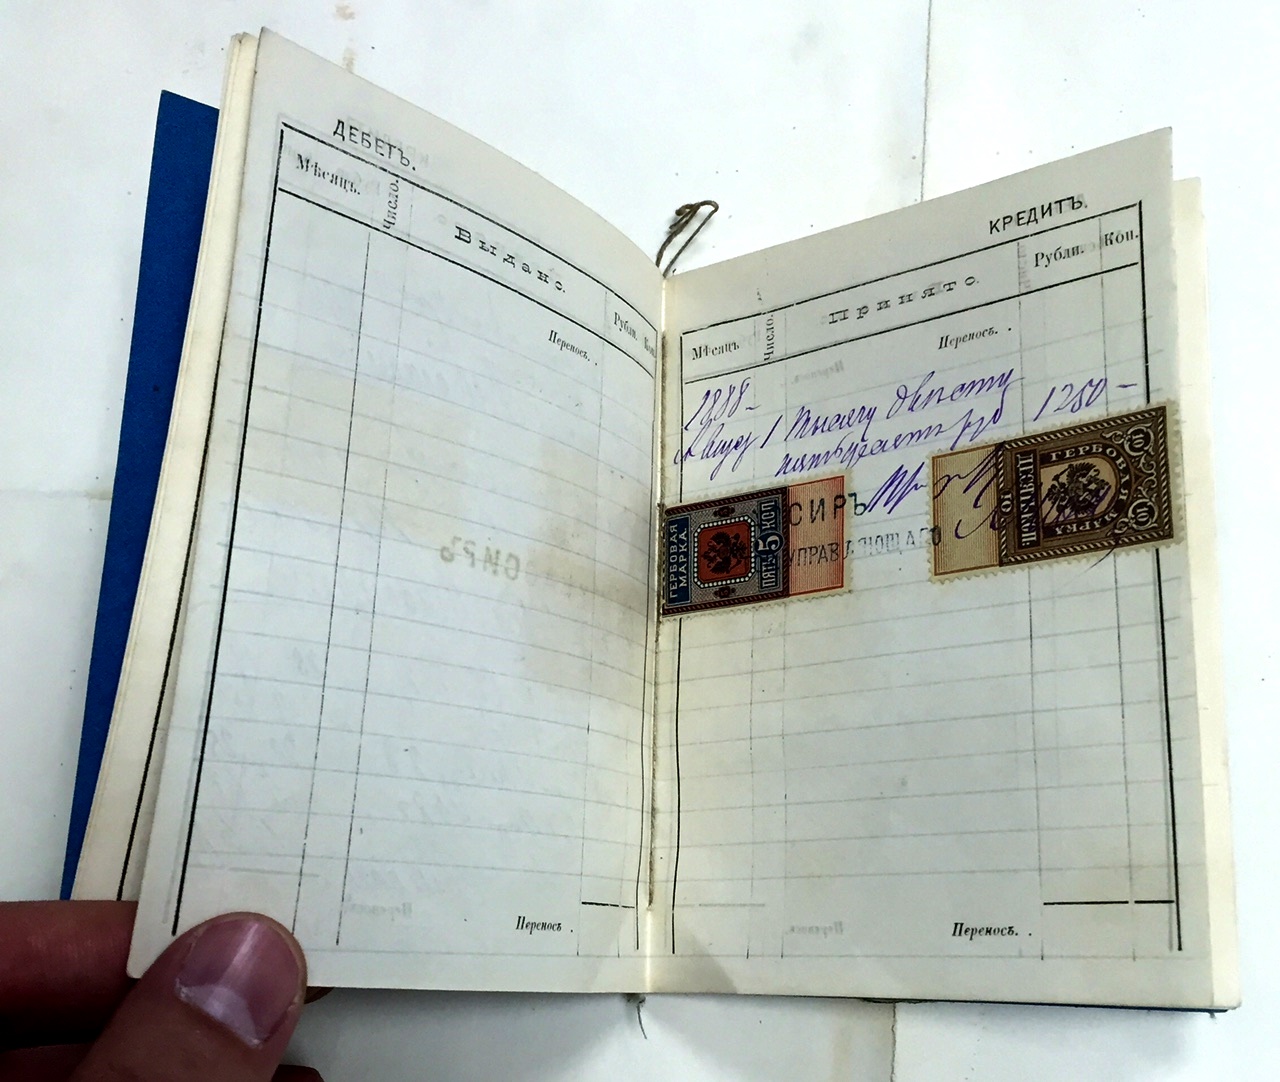 ДЕБЕТЪ.
Мѣсяцъ. Число. Выдано. Рубли. Коп.
Переносъ.
Переносъ.
КРЕДИТЪ.
Мѣсяцъ Число. Принято. Рубли. Коп.
Переносъ.
1888 -
Август 1 Тысячу двѣсти
пятьдесятъ руб 1250 -
ГЕРБОВАЯ
МАРКА
ПЯТЬ 5 КОП
СИРЪ
УПРАВЛЯЮЩАГО
10 ДЕСЯТЬ КОП
ГЕРБОВАЯ
МАРКА
10
10
Переносъ.